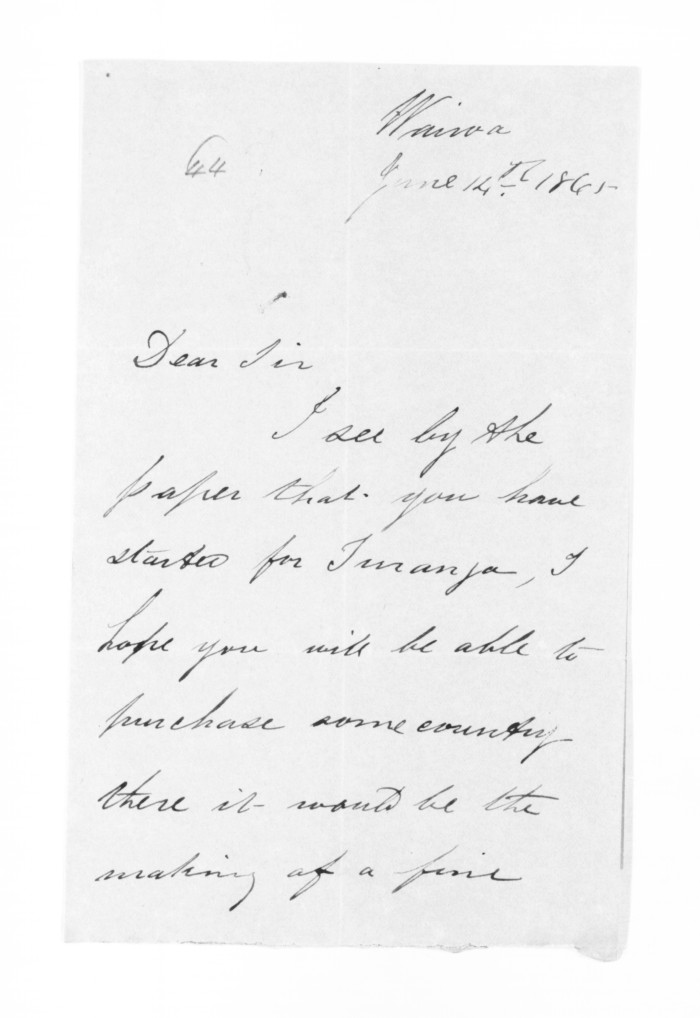 Wairoa
44
June 14th. 1865
Dear Sir
I see by the
paper that you have
started for Turanga, I
hope you will be able to
purchase some country
there it would be the
making of a fine